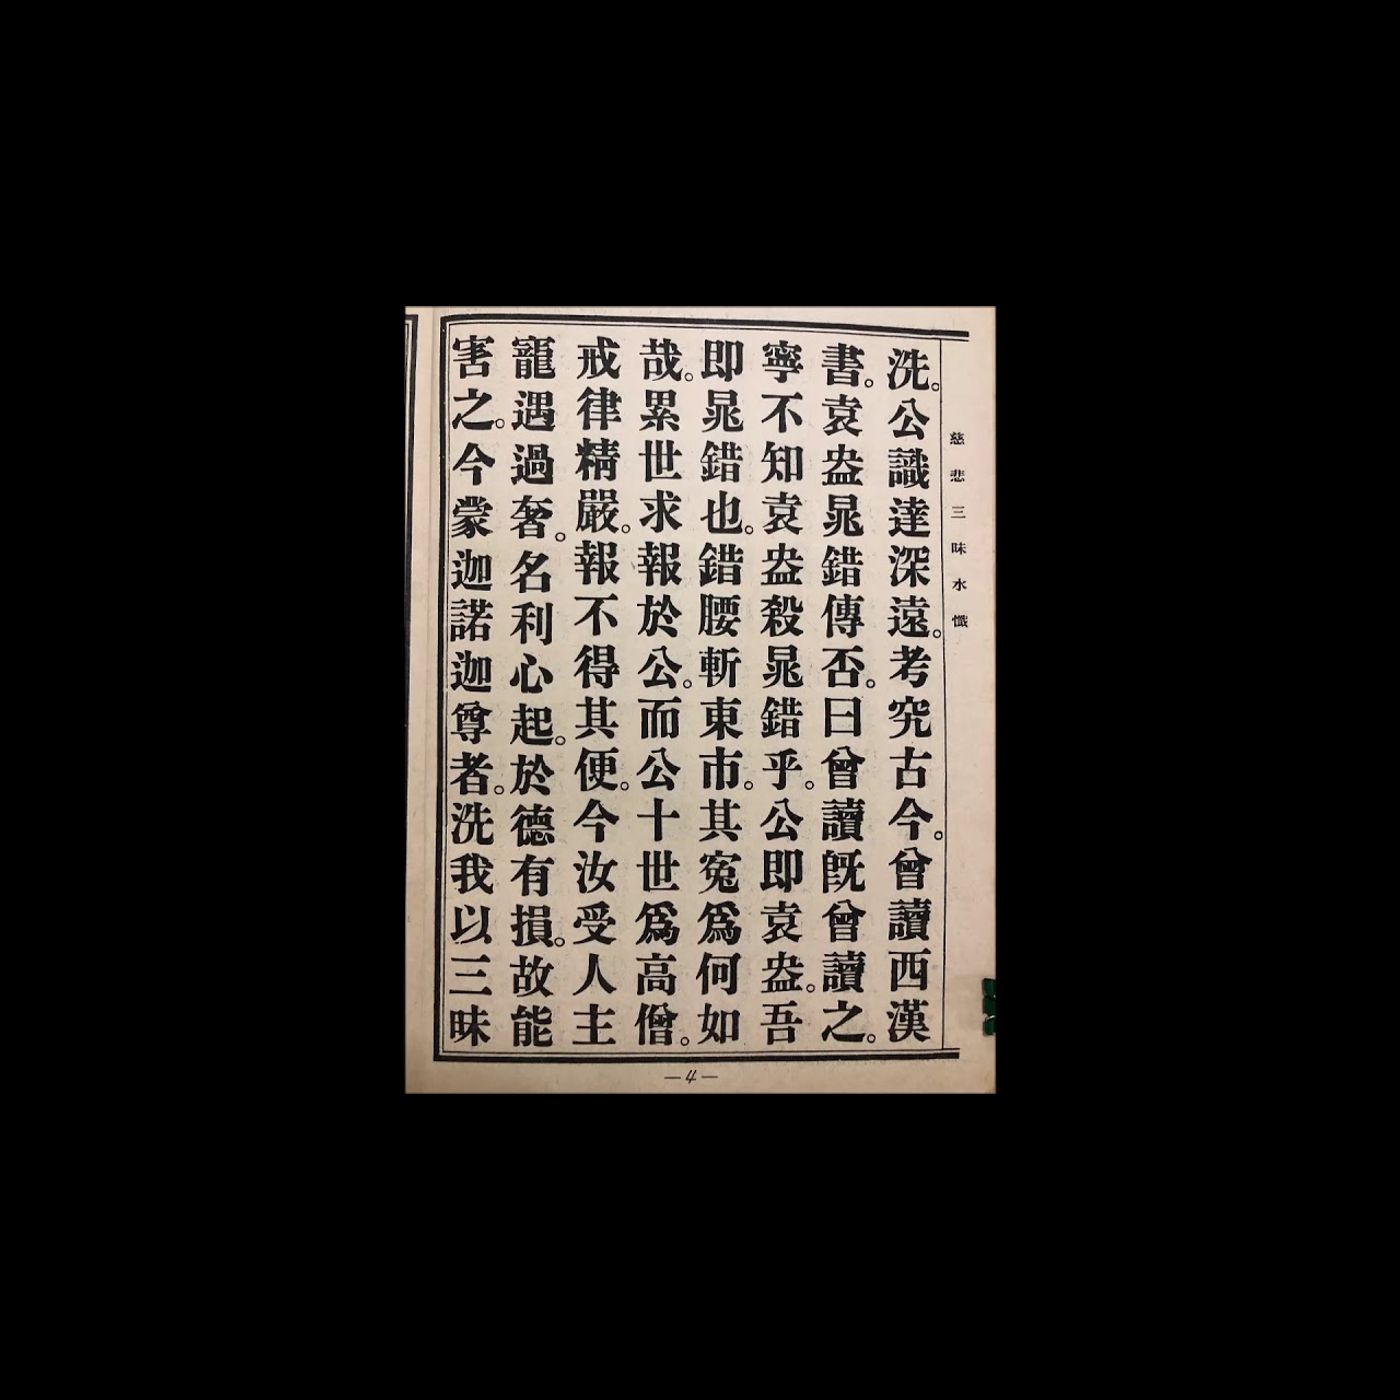 慈悲三昧水懺
洗。公識達深遠。考究古今。曾讀西漢
書。袁盎晁錯傳否。曰曾讀旣曾讀之。
寧不知袁盎殺晁錯乎。公即袁盎。吾
即晁錯也。錯腰斬東市。其寃爲何如
哉。累世求報於公。而公十世爲高僧。
戒律精嚴。報不得其便。今汝受人主
寵遇過奢。名利心起。於德有損。故能
害之。今蒙迦諾迦尊者。洗我以三昧
—4—